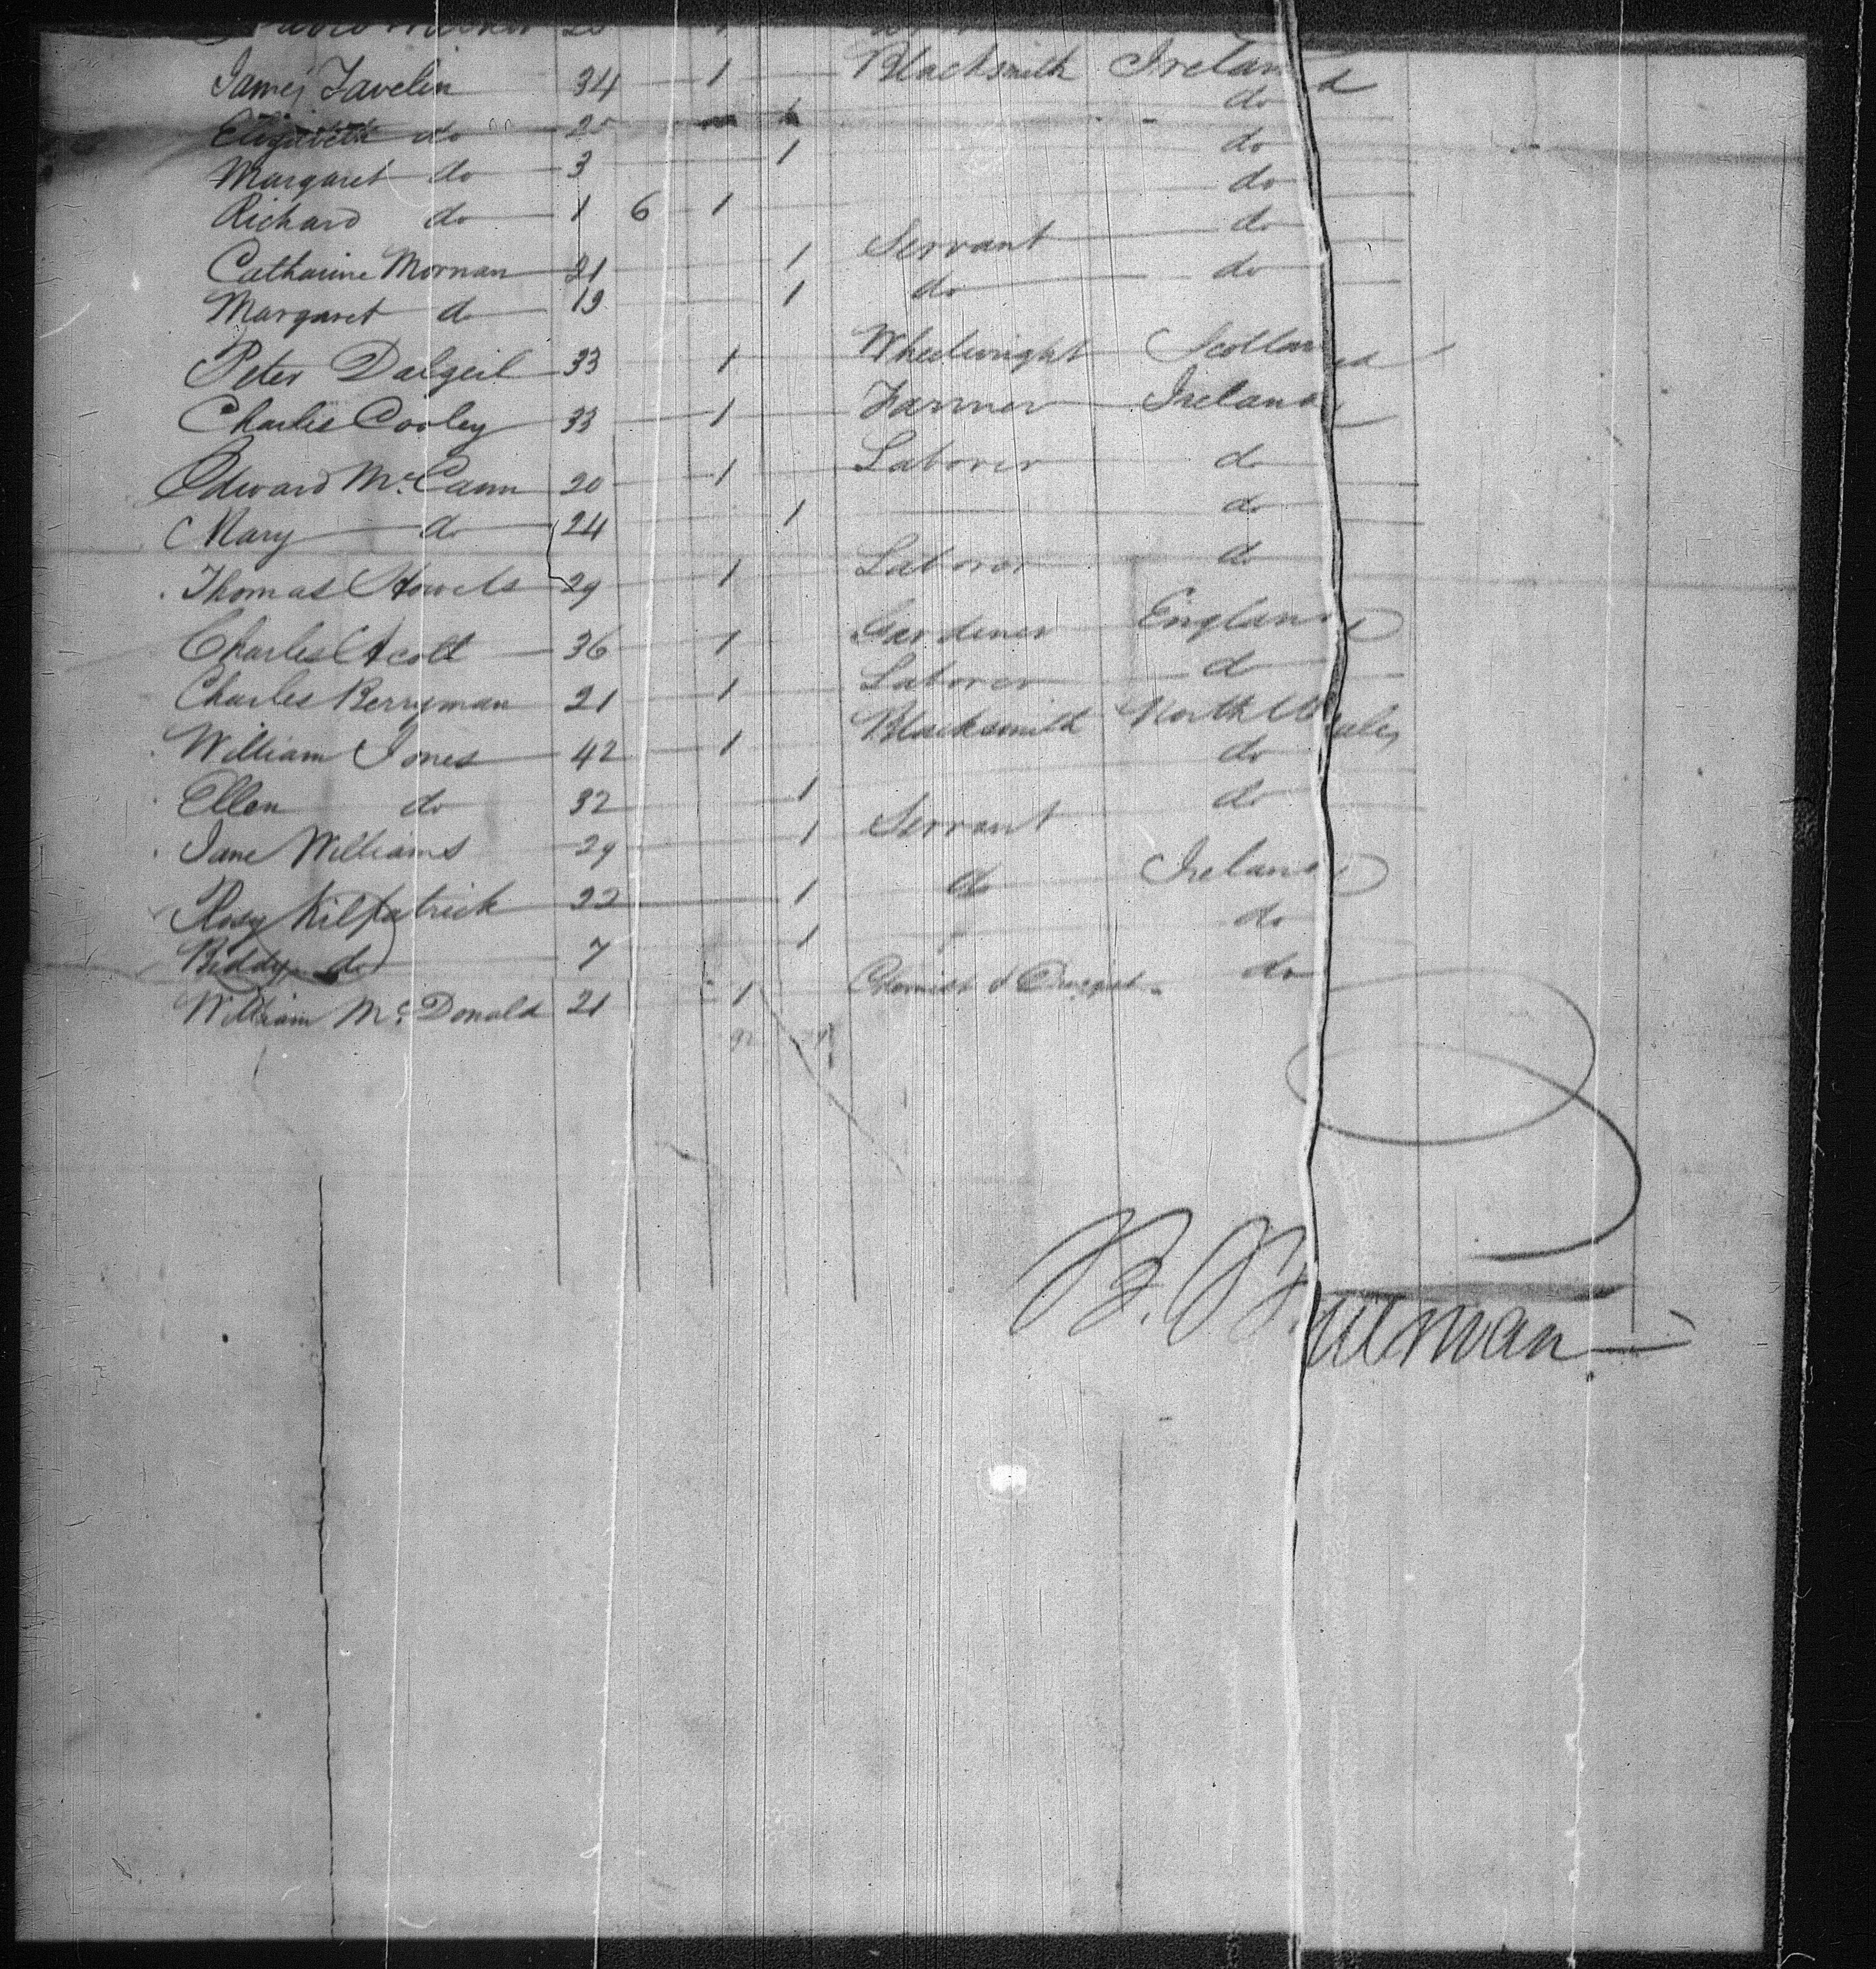 James Javelin 34 1 Blacksmith Ireland
Elizabeth do 25 1 do
Margaret do 3 1 do
Richard do 1 6 1 do
Catharine Mornan 21 1 Servant do
Margaret do 19 1 do do
Peter Dalgeil 33 1 Wheelwright Scotland
Charles Cooley 33 1 Farmer Ireland
Edward McCann 20 1 Laborer do
Mary do 24 1 do
Thomas Howels 29 1 Laborer do
Charles Scott 36 1 Gardener England
Charles Berryman 21 1 Laborer do
William Jones 42 1 Blacksmith North Wales
Ellen do 32 1 do
Jane Williams 29 1 Servant do
Rosy Kilpatrick 22 1 do Ireland
Biddy do 7 1 do
William McDonald 21 1 do